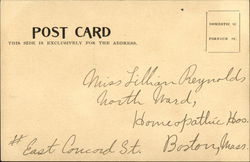 POST CARD
THIS SIDE IS EXCLUSIVELY FOR THE ADDRESS.
DOMESTIC
FOREIGN
Miss Lillian Reynolds
North Ward,
Homeopathic Hos.
East Concord St. Boston, Mass.